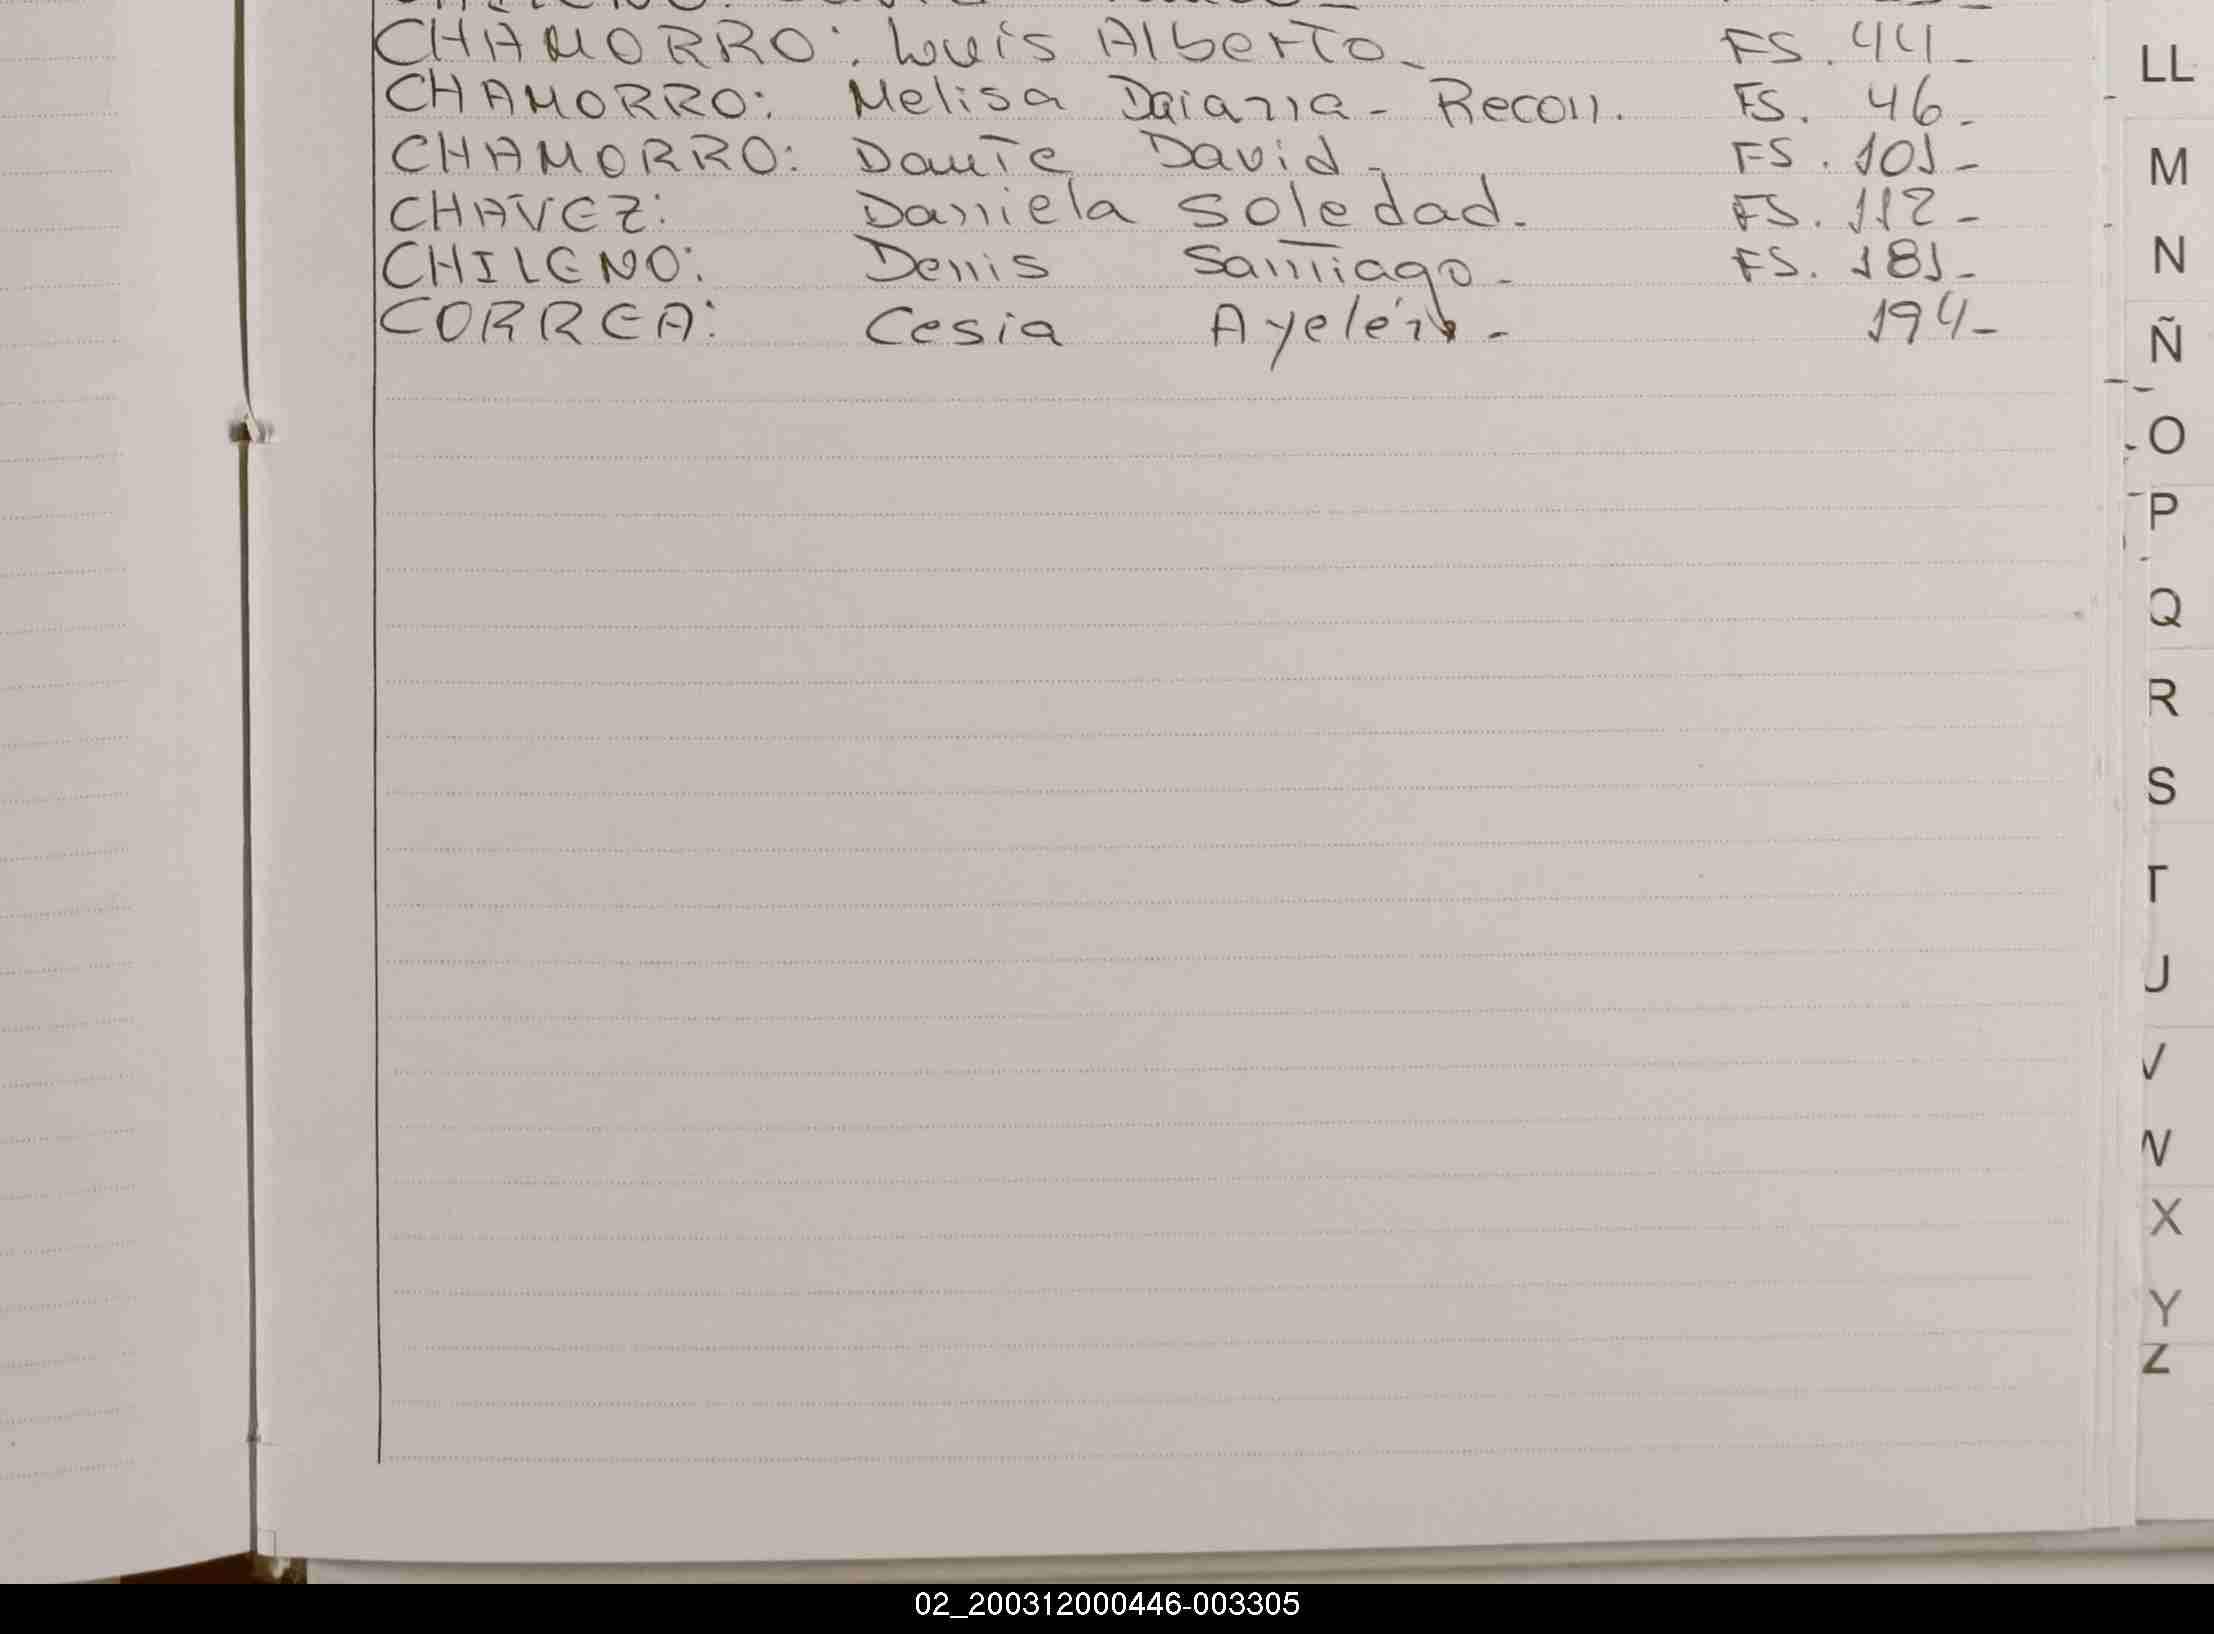 CHAMORRO: Luis Alberto - FS. 44 -
CHAMORRO: Melisa Daiana - Recon. FS. 46 -
CHAMORRO: Dante David - FS. 101 -
CHAVEZ: Daniela Soledad - FS. 112 -
CHILENO: Denis Santiago - FS. 181 -
CORREA: Cesia Ayelén - 194 -
LL
M
N
Ñ
O
P
Q
R
S
T
U
V
W
X
Y
Z
02_200312000446-003305